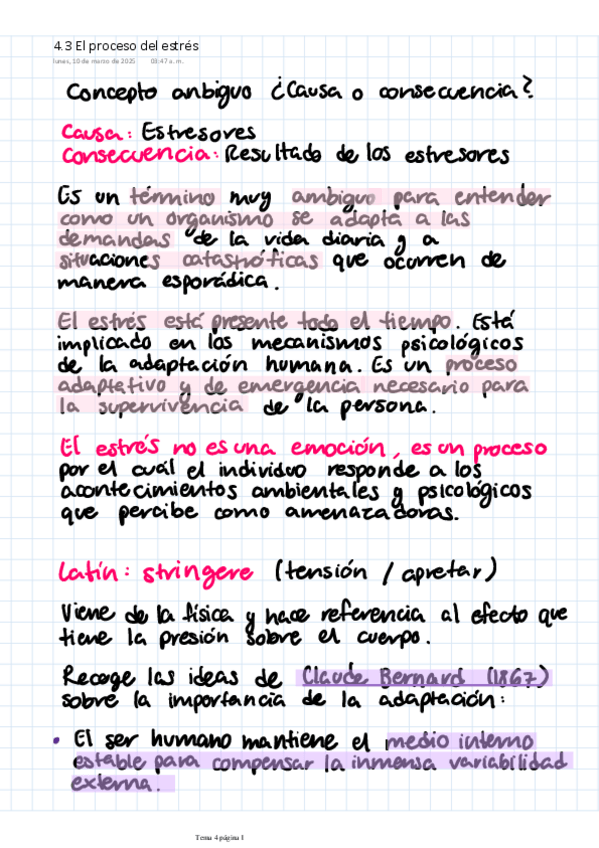 4.3 El proceso del estrés
lunes, 10 de marzo de 2025 03:47 a. m.
Concepto ambiguo ¿Causa o consecuencia?
Causa: Estresores
Consecuencia: Resultado de los estresores
Es un término muy ambiguo para entender
como un organismo se adapta a las
demandas de la vida diaria y a
situaciones catastróficas que ocurren de
manera esporádica.
El estrés está presente todo el tiempo. Está
implicado en los mecanismos psicológicos
de la adaptación humana. Es un proceso
adaptativo y de emergencia necesario para
la supervivencia de la persona.
El estrés no es una emoción, es un proceso
por el cuál el individuo responde a los
acontecimientos ambientales y psicológicos
que percibe como amenazadoras.
Latín: stringere (tensión / apretar)
Viene de la física y hace referencia al efecto que
tiene la presión sobre el cuerpo.
Recoge las ideas de Claude Bernard (1867)
sobre la importancia de la adaptación:
• El ser humano mantiene el medio interno
estable para compensar la inmensa variabilidad
externa.
Tema 4 página 1